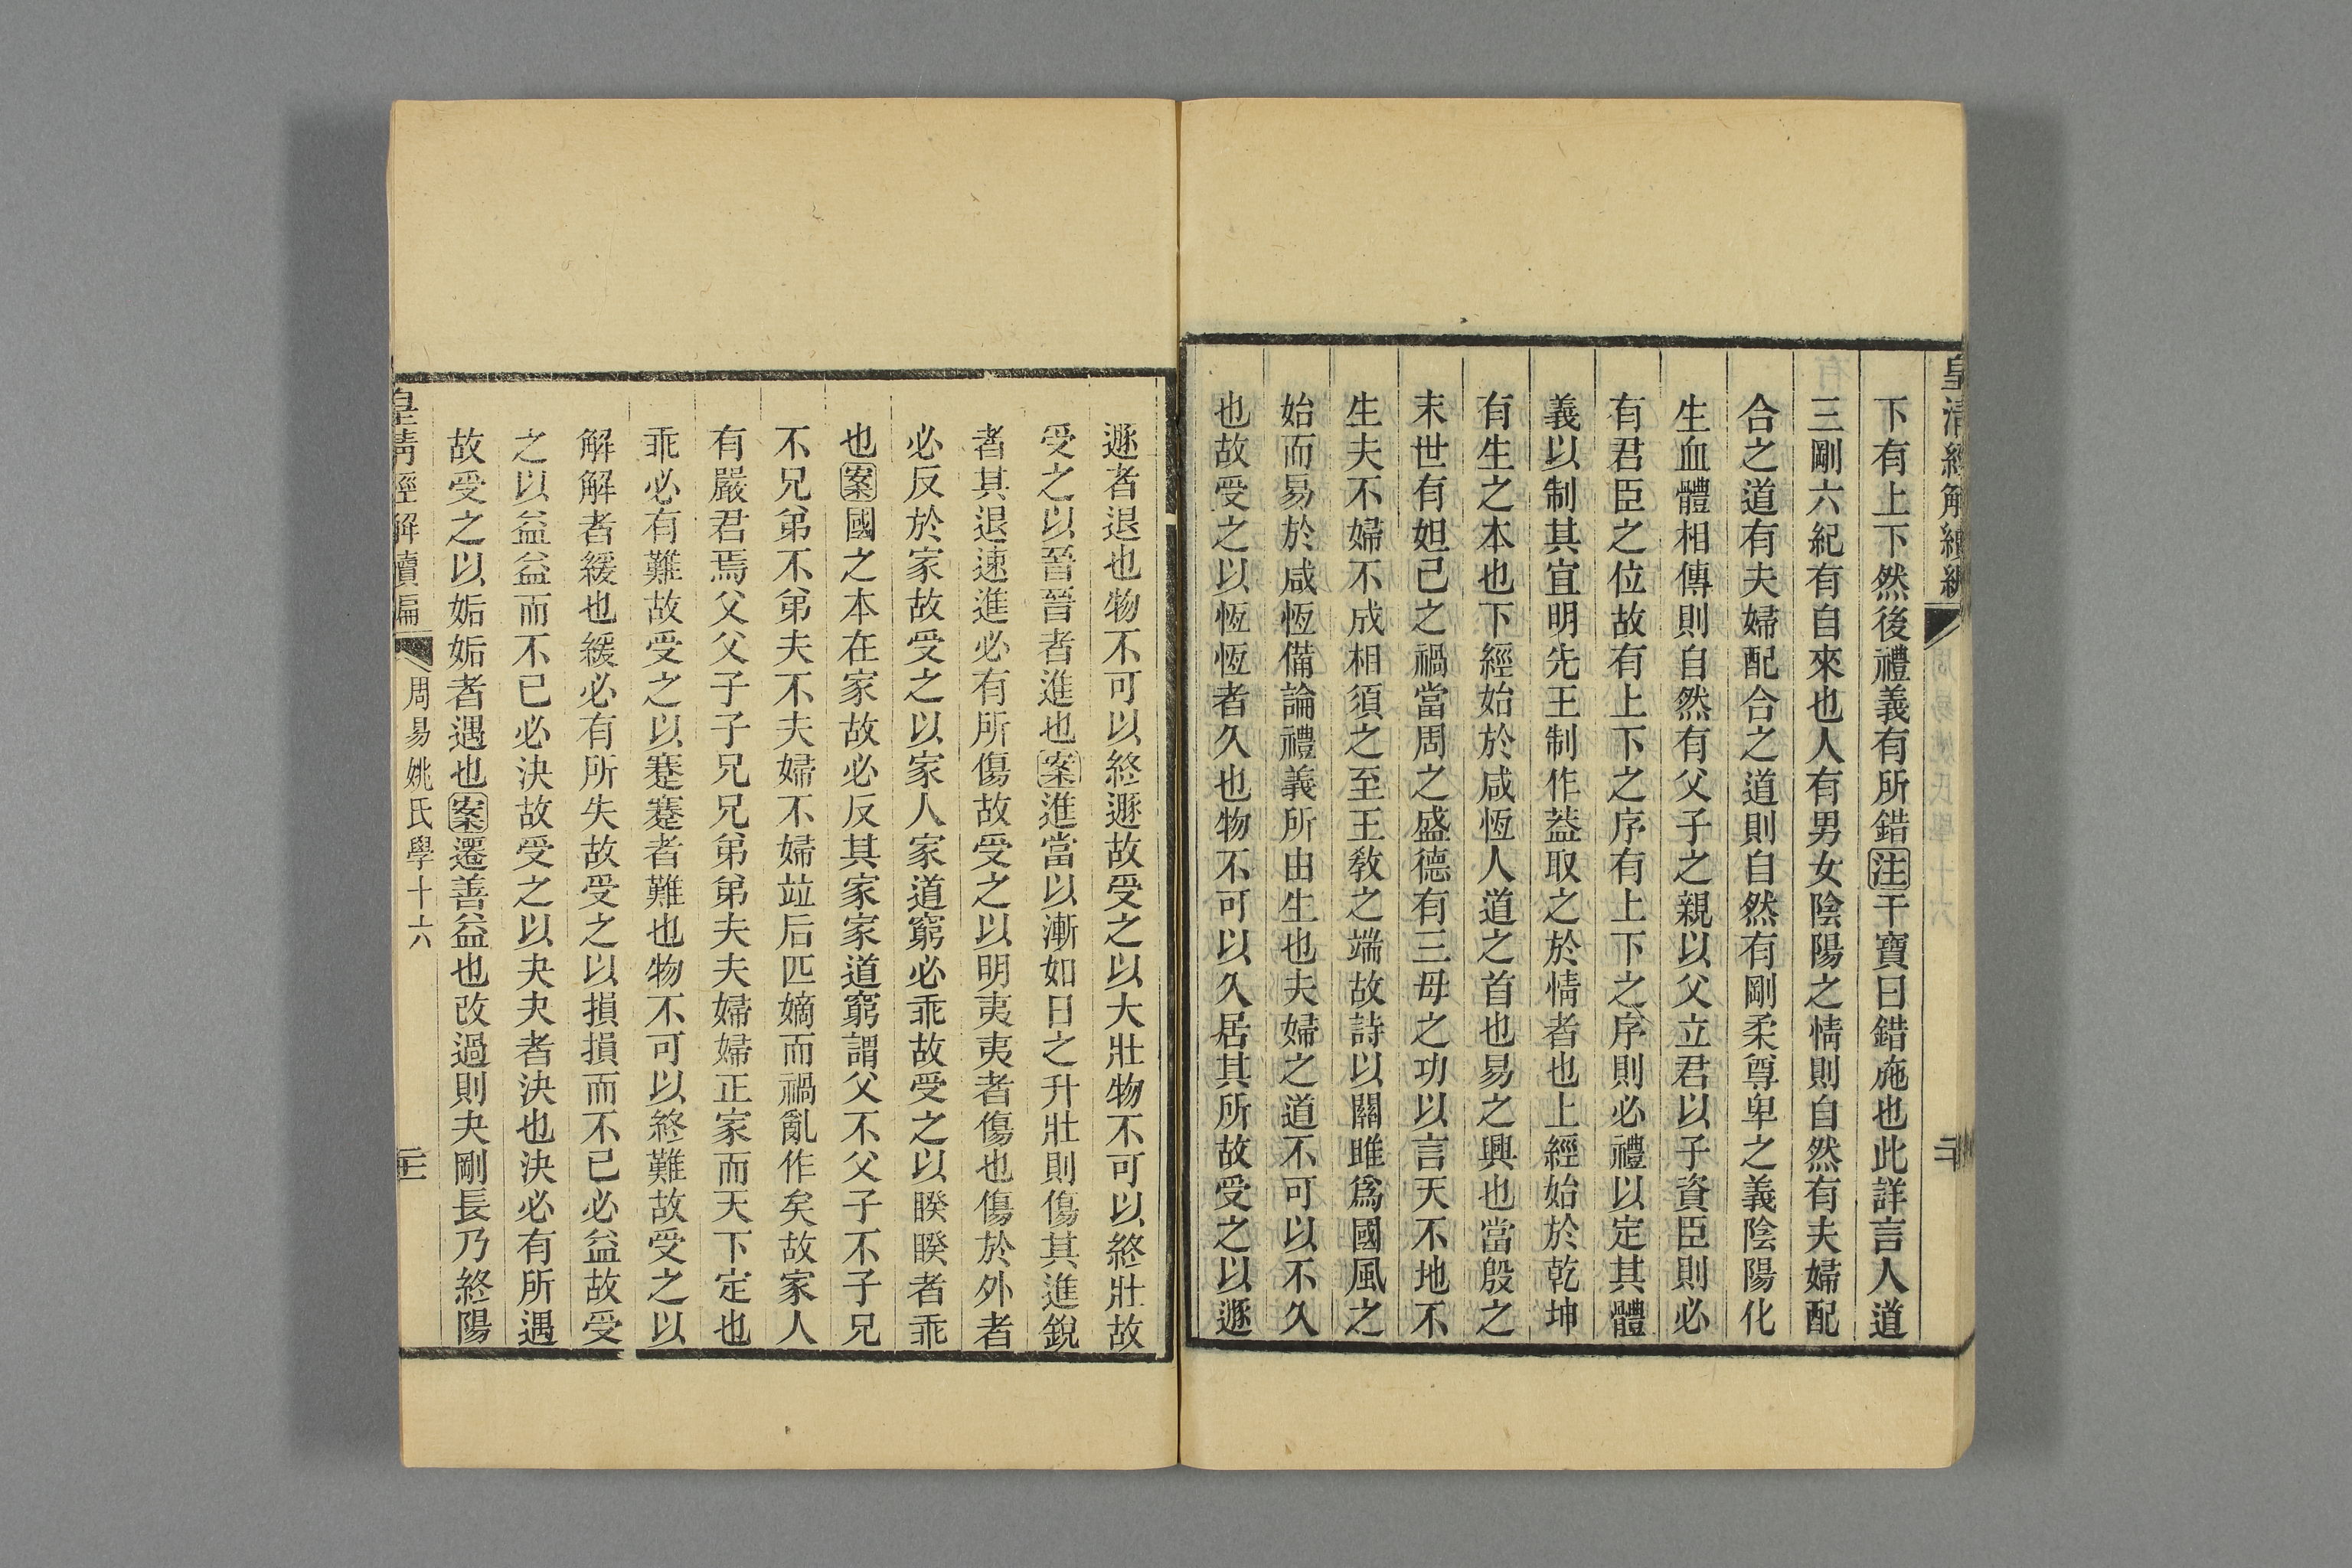 皇清經解續編
二
下有上下然後禮義有所錯注干寶曰錯施也此詳言人道
三剛六紀有自來也人有男女陰陽之情則自然有夫婦配
合之道有夫婦配合之道則自然有剛柔尊卑之義陰陽化
生血體相傳則自然有父子之親以父立君以子資臣則必
有君臣之位故有上下之序有上下之序則必禮以定其體
義以制其宜明先王制作葢取之於情者也上經始於乾坤
有生之本也下經始於咸恆人道之首也易之興也當殷之
末世有妲己之禍當周之盛德有三母之功以言天不地不
生夫不婦不成相須之至王敎之端故詩以關雎爲國風之
始而易於咸恆備論禮義所由生也夫婦之道不可以不久
也故受之以恆恆者久也物不可以久居其所故受之以遯
遯者退也物不可以終遯故受之以大壯物不可以終壯故
受之以晉晉者進也案進當以漸如日之升壯則傷其進銳
者其退速進必有所傷故受之以明夷夷者傷也傷於外者
必反於家故受之以家人家道窮必乖故受之以睽睽者乖
也案國之本在家故必反其家家道窮謂父不父子不子兄
不兄弟不弟夫不夫婦不婦竝后匹嫡而禍亂作矣故家人
有嚴君焉父父子子兄兄弟弟夫夫婦婦正家而天下定也
乖必有難故受之以蹇蹇者難也物不可以終難故受之以
解解者緩也緩必有所失故受之以損損而不已必益故受
之以益益而不已必決故受之以夬夬者決也決必有所遇
故受之以姤姤者遇也案遷善益也改過則夬剛長乃終陽
皇清經解續編
周易姚氏學十六
三